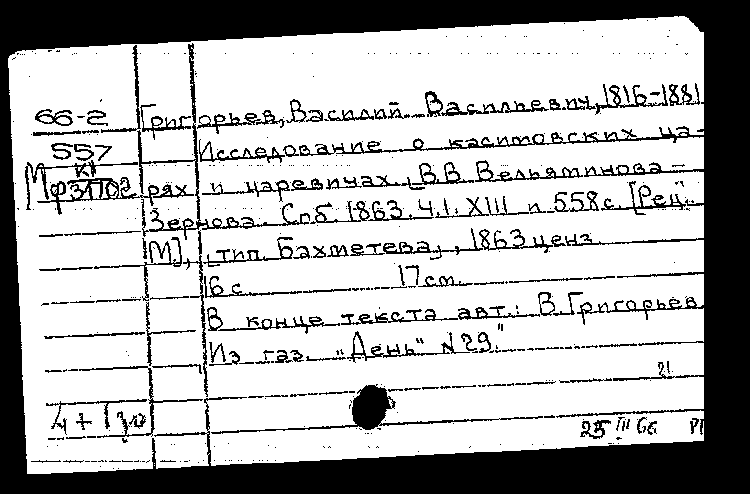 66-2 Григорьев, Василий Васильевич, 1816-1881
557 Исследование о касимовских ца-
К1
Мф31702 рях и царевичах. [В.В. Вельяминова-
Зернова. Спб. 1863. Ч.1. XIII п 558 с. [Рец."
М], [тип. Бахметева], 1863 ценз.
16 с. 17 см.
В конце текста авт.: В. Григорьев.
Из газ. "День" №29."
21
4+1
25 III 66